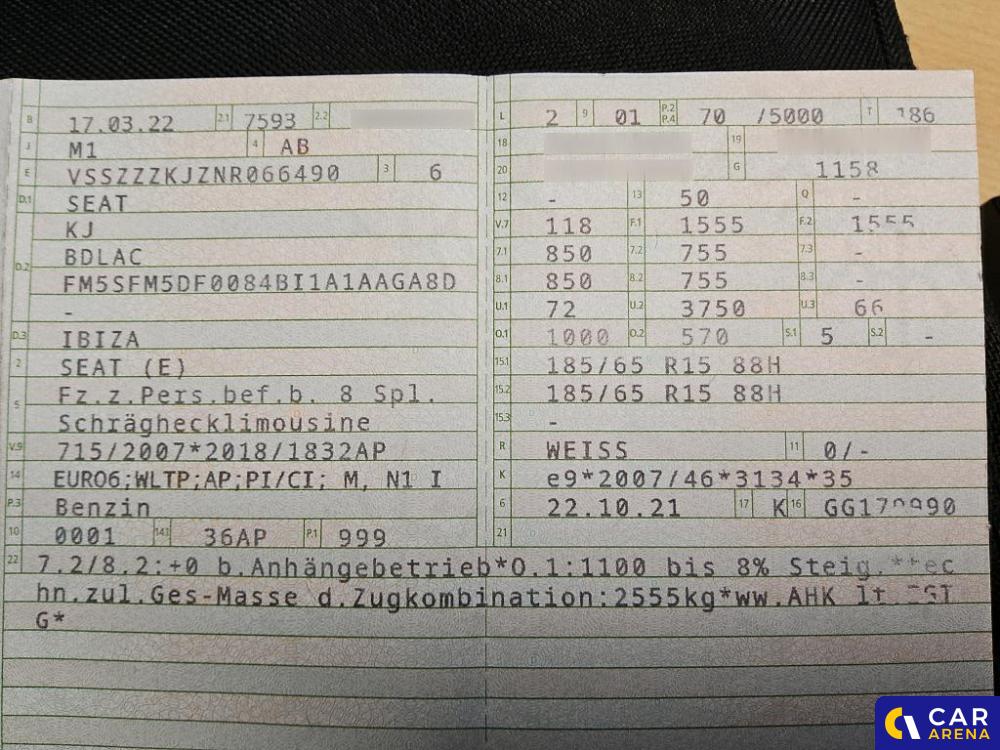 B 17.03.22 2.1 7593 2.2
J M1 4 AB
E VSSZZZKJZNR066490 3 6
D.1 SEAT
KJ
D.2 BDLAC
FM5SFM5DF0084BI1A1AAGA8D
-
D.3 IBIZA
2 SEAT (E)
5 Fz.z.Pers.bef.b. 8 Spl.
Schräghecklimousine
V.9 715/2007*2018/1832AP
14 EURO6;WLTP;AP;PI/CI; M, N1 I
P.3 Benzin
10 0001 14.1 36AP P.1 999
L 2 9 01 P.2 P.4 70 /5000 T 186
18 19
20 G 1158
12 - 13 50 Q -
V.7 118 F.1 1555 F.2 1555
7.1 850 7.2 755 7.3 -
8.1 850 8.2 755 8.3 -
U.1 72 U.2 3750 U.3 66
O.1 1000 O.2 570 S.1 5 S.2 -
15.1 185/65 R15 88H
15.2 185/65 R15 88H
15.3 -
R WEISS 11 0/-
K e9*2007/46*3134*35
6 22.10.21 17 K 16
21
22 7.2/8.2:+0 b.Anhängebetrieb*O.1:1100 bis 8% Steig.
hn.zul.Ges-Masse d.Zugkombination:2555kg*ww.AHK lt.
G*
CAR
ARENA